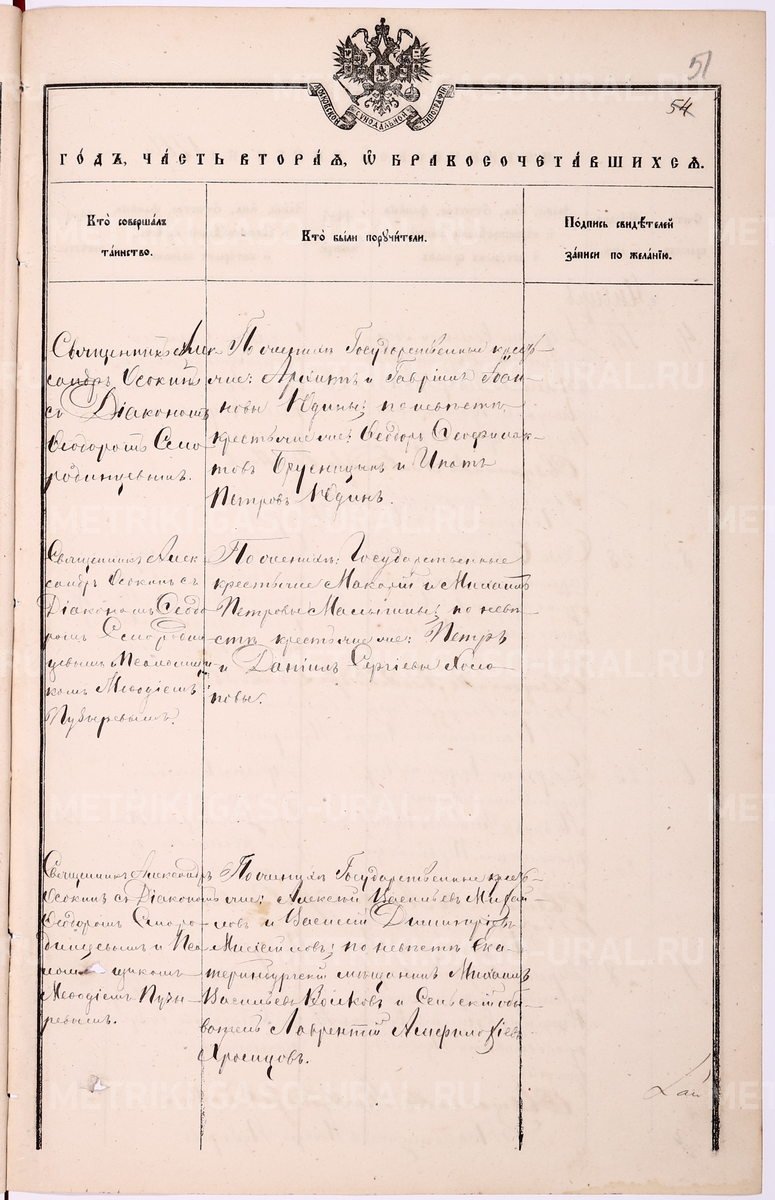 51
54
МОСКОВСКОЙ СѴНОДАЛЬНОЙ ТИПОГРАФІИ
ГО́ДЪ, ЧА́СТЬ ВТОРА́Ѧ, Ѽ БРАКОСОЧЕТА́ВШИХСѦ.
Кто̀ соверша́лъ
та́инство.
Кто̀ бы́ли порꙋчи́тели.
По́дпись свидѣ́телей
за́писи по жела́нїю.
Священникъ Алек-
сандръ Осокинъ
съ Діакономъ
Ѳеодоромъ Сморо-
динцевымъ.
По женихѣ Государственные кресть-
яне: и Гавріилъ Іоан-
новы Юдины; по невѣстѣ
крестьяне: Ѳеодоръ Ѳеофилак-
товъ Брусницынъ и Ипатъ
Петровъ Юдинъ.
Священникъ Алек-
сандръ Осокинъ съ
Діакономъ Ѳеодо-
ромъ Смородин-
цевымъ и Псаломщи-
комъ Меѳодіемъ
Пузыревымъ.
По женихѣ: Государственные
крестьяне Макарій и Михаилъ
Петровы Малыгины; по невѣ-
стѣ крестьяне: Петръ
и Даніилъ Сергіевы Холо
повы.
Священникъ Александръ
Осокинъ съ Діакономъ
Ѳеодоромъ Сморо-
динцевымъ и Пса-
ломщикомъ
Меѳодіемъ Пузы-
ревымъ.
По женихѣ Государственные кресть-
яне: Алексѣй Васильевъ Михай-
ловъ и Василій Димитріевъ
Михайловъ; по невѣстѣ Ека-
теринбургскій мѣщанинъ Михаилъ
Васильевъ Волковъ и Сельскій обы-
ватель Лаврентій Амфилохіевъ
Хромцовъ.
METRIKI.GASO-URAL.RU